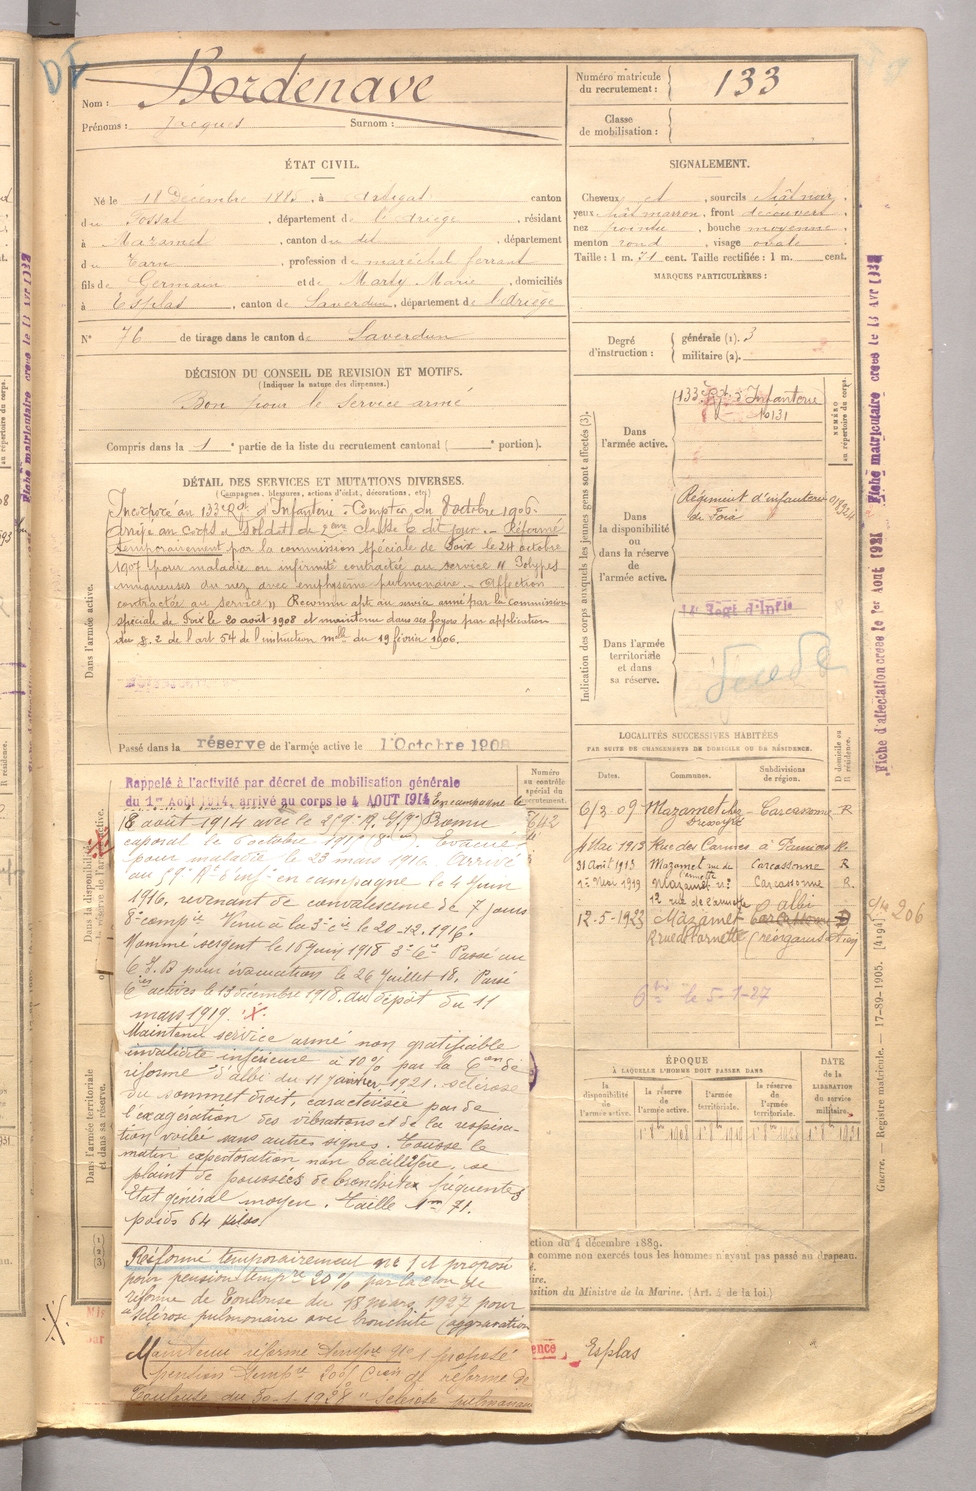 Nom : Bordenave
Prénoms : Jacques Surnom :
Numéro matricule du recrutement : 133
Classe de mobilisation :
ÉTAT CIVIL.
Né le 18 Décembre 1885, à Artigat canton
du Fossat, département de l'Ariège, résidant
à Mazamet, canton du dit, département
du Tarn, profession de maréchal ferrant
fils de Germain et de Marty Marie, domiciliés
à Esplas, canton de Saverdun, département de l'Ariège
N° 76 de tirage dans le canton de Saverdun
SIGNALEMENT.
Cheveux et, sourcils chât noir,
yeux chât marron, front découvert,
nez pointu, bouche moyenne,
menton rond, visage ovale.
Taille : 1 m. 71 cent. Taille rectifiée : 1 m. cent.
MARQUES PARTICULIÈRES :
Degré d'instruction : générale (1). 3
militaire (2).
DÉCISION DU CONSEIL DE REVISION ET MOTIFS.
(Indiquer la nature des dispenses.)
Bon pour le service armé
Compris dans la 1 e partie de la liste du recrutement cantonal ( e portion).
DÉTAIL DES SERVICES ET MUTATIONS DIVERSES.
(Campagnes, blessures, actions d'éclat, décorations, etc.)
Incorporé au 133e Rgt d'Infanterie à Compter du 8 octobre 1906.
Arrivé au corps et Soldat de 2ème classe le dit jour. - Réformé
temporairement par la commission spéciale de Foix le 24 octobre
1907 pour maladie ou infirmité contractée au service " Polypes
muqueuses du nez avec emphysème pulmonaire. - Affection
contractée au service " Reconnu apte au service armé par la commission
spéciale de Foix le 20 août 1908 et maintenu dans ses foyers par application
du § 2 de l'art 54 de l'instruction mlle du 19 février 1906.
Dans l'armée active.
Passé dans la réserve de l'armée active le 1 Octobre 1908
Indication des corps auxquels les jeunes gens sont affectés (3).
NUMÉRO au répertoire du corps.
Dans l'armée active.
133e Rgt d'Infanterie
Dans la disponibilité ou dans la réserve de l'armée active.
Régiment d'infanterie
de Foix
Dans l'armée territoriale et dans sa réserve.
Fiche matriculaire créée le
Fiche d'affectation créée le 1er Aout 1921
LOCALITÉS SUCCESSIVES HABITÉES
PAR SUITE DE CHANGEMENTS DE DOMICILE OU DE RÉSIDENCE.
Dates. Communes. Subdivisions de région. D domicile ou R résidence.
6/3 09 Mazamet chez Carcassonne R
4 Mai 1913 Rue des Carmes à Pamiers
31 Août 1913 Mazamet rue de l'armette Carcassonne R
1er Mai 1919 Mazamet Carcassonne R.
12 rue de l'armette
12-5-1923 Mazamet Albi
12 rue de l'arnette (réorganisation)
le 5-1-27
Rappelé à l'activité par décret de mobilisation générale
du 1er Août 1914, arrivé au corps le 4 AOUT 1914 En campagne le
8 août 1914 avec le 259e R.I. Promu
caporal le 6 octobre 1915. Evacué
pour maladie le 23 mars 1916. Arrivé
au 59e Rt d'inf en campagne le 4 Juin
1916, revenant de convalescence de 7 jours
8e compie Venu à la 3e Cie le 20-12-1916.
Nommé sergent le 16 juin 1918 3e Cie Passé au
C.I.D pour évacuation le 26 Juillet 18. Passé
Cies actives le 13 décembre 1918. au dépôt du 11
mars 1919. X.
Maintenu service armé non gratifiable
invalidité inférieure à 10% par la Con de
réforme d'Albi du 11 janvier 1921. sclérose
du sommet droit, caractérisée par de
l'exagération des vibrations et de la respira-
tion voilée sans autres signes. Tousse le
matin expectoration non bacillifère, se
plaint de poussées de bronchites fréquentes
Etat général moyen. Taille 1m 71.
poids 64 kilos.
Réformé temporairement n° 1 et proposé
pour pension tempre 20% par la Con de
réforme de Toulouse du 18 mars 1927 pour
"sclérose pulmonaire avec bronchite (aggravation
Maintenu réforme tempre n° 1 proposé
pension tempre 20% Con de réforme de
Toulouse du 30-1-1928 "Sclérose pulmonaire
Numéro au contrôle spécial du recrutement.
ÉPOQUE
À LAQUELLE L'HOMME DOIT PASSER DANS
la disponibilité de l'armée active. la réserve de l'armée active. l'armée territoriale. la réserve de l'armée territoriale.
DATE de la LIBÉRATION du service militaire.
Dans l'armée territoriale et dans sa réserve.
ction du 4 décembre 1889.
a comme non exercés tous les hommes n'ayant pas passé au drapeau.
position du Ministre de la Marine. (Art. 4 de la loi.)
Guerre. — Registre matricule. — 17-89-1905. [4194]
Esplas